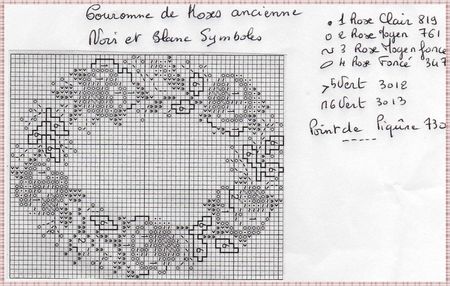 Couronne de Roses ancienne
Noir et Blanc Symboles
• 1 Rose Clair 819
o 2 Rose Moyen 761
~ 3 Rose Moyen foncé
4 Rose Foncé 347
> 5 Vert 3012
n 6 Vert 3013
Point de Piqûre 730